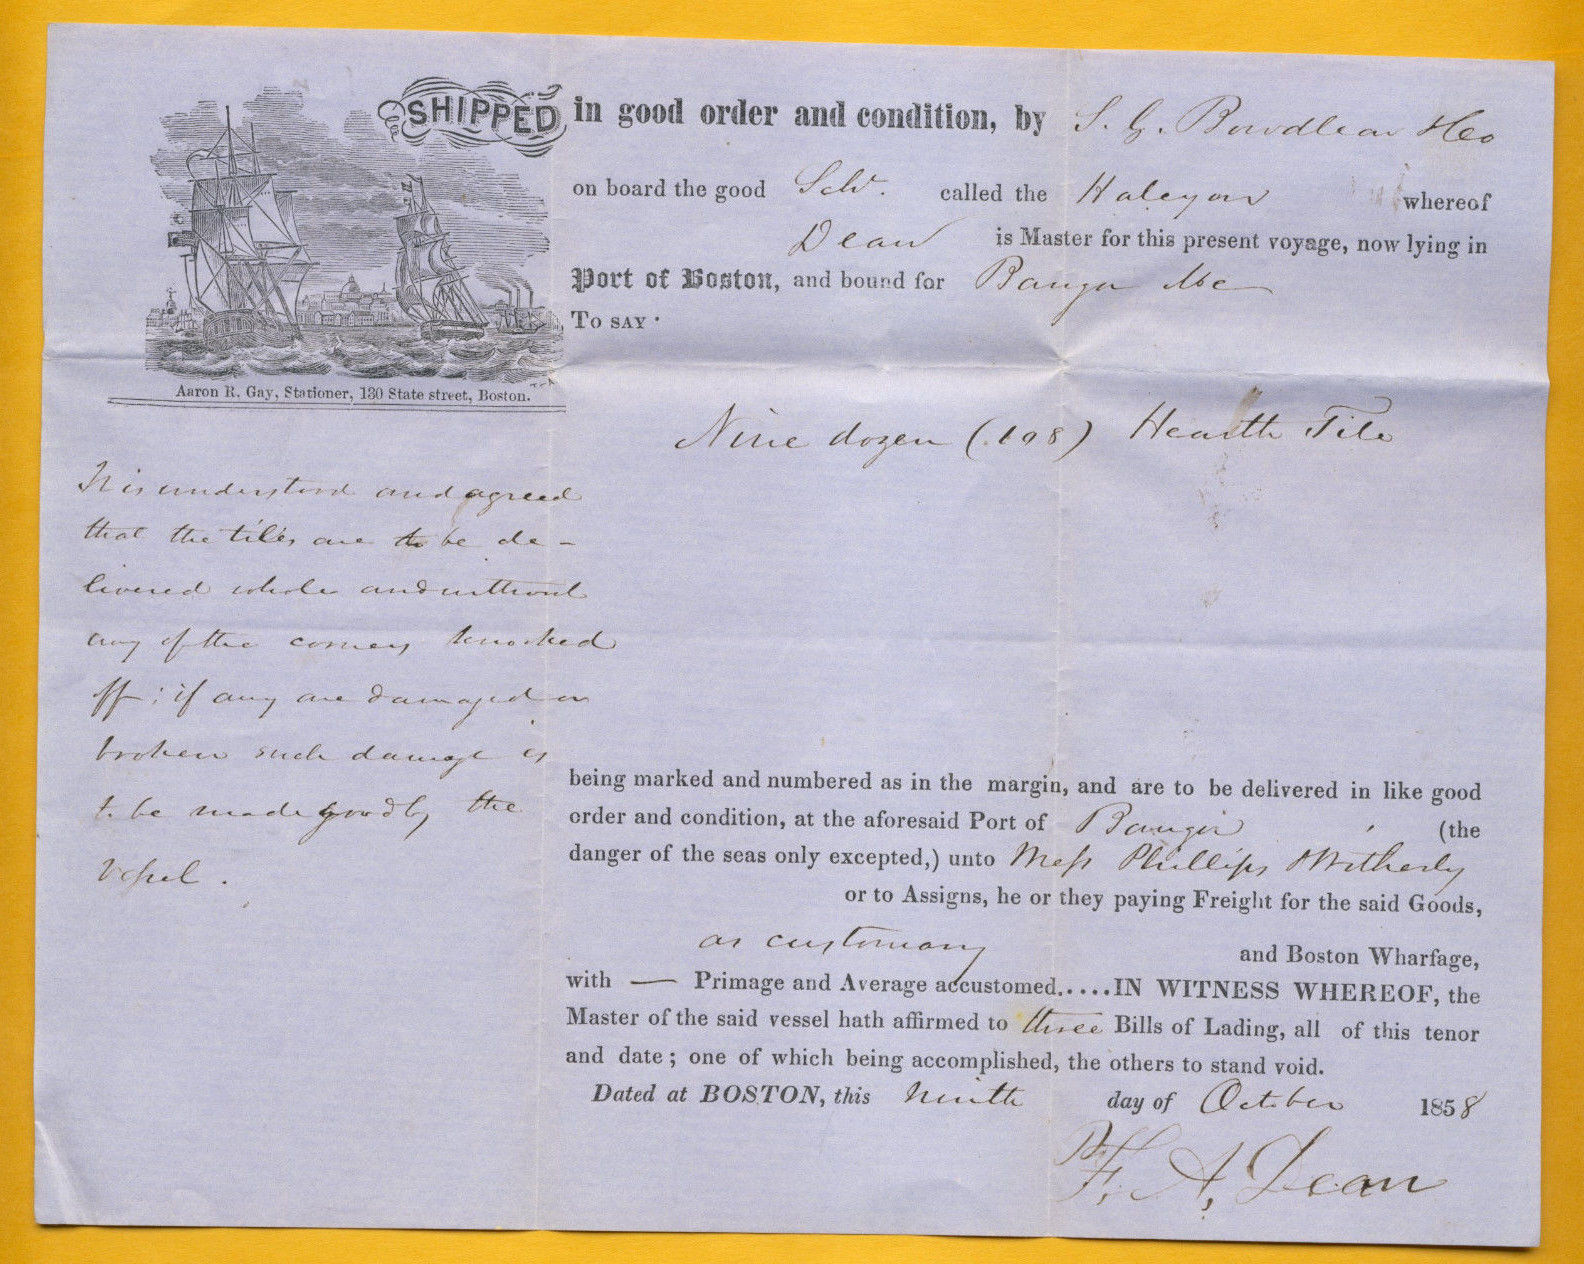 SHIPPED in good order and condition, by S. G. Bowdlear & Co
on board the good Sch. called the Halcyon whereof
Dean is Master for this present voyage, now lying in
Port of Boston, and bound for Bangor Me
To SAY
Aaron R. Gay, Stationer, 130 State street, Boston.
Nine dozen (108) Hearth Tile
It is understood and agreed
that the tiles are to be de-
livered whole and without
any of the corners knocked
off; if any are damaged or
broken such damage is
to be made good by the
vessel.
being marked and numbered as in the margin, and are to be delivered in like good
order and condition, at the aforesaid Port of Bangor (the
danger of the seas only excepted,) unto Mess Phillips & Witherly
or to Assigns, he or they paying Freight for the said Goods,
as customary and Boston Wharfage,
with — Primage and Average accustomed.....IN WITNESS WHEREOF, the
Master of the said vessel hath affirmed to three Bills of Lading, all of this tenor
and date; one of which being accomplished, the others to stand void.
Dated at BOSTON, this Ninth day of October 1858
F. A. Dean